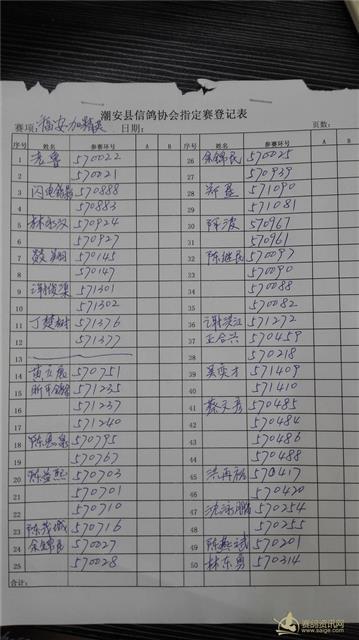 潮安县信鸽协会指定赛登记表
赛项: 福安加精英 日期: 页数:
序号 姓名 参赛环号 A B 序号 姓名 参赛环号 A B
1 570022 26 余锦民 570025
2 570221 27 570939
3 闪电 570888 28 571090
4 570883 29 571081
5 570924 30 陈波 570967
6 570927 31 570961
7 570145 32 陈继民 570097
8 570147 33 570090
9 571301 34 570088
10 571302 35 570082
11 丁楚树 571376 36 571272
12 571377 37 王合兴 570459
13 38 570218
14 570751 39 吴奕才 571409
15 571235 40 571410
16 571237 41 570485
17 571240 42 570484
18 570795 43 570486
19 570767 44 570488
20 570703 45 570417
21 570701 46 570420
22 570710 47 570254
23 570716 48 570255
24 570027 49 570201
25 570028 50 林东勇 570314
合计:
赛鸽资讯网
www.saige.com